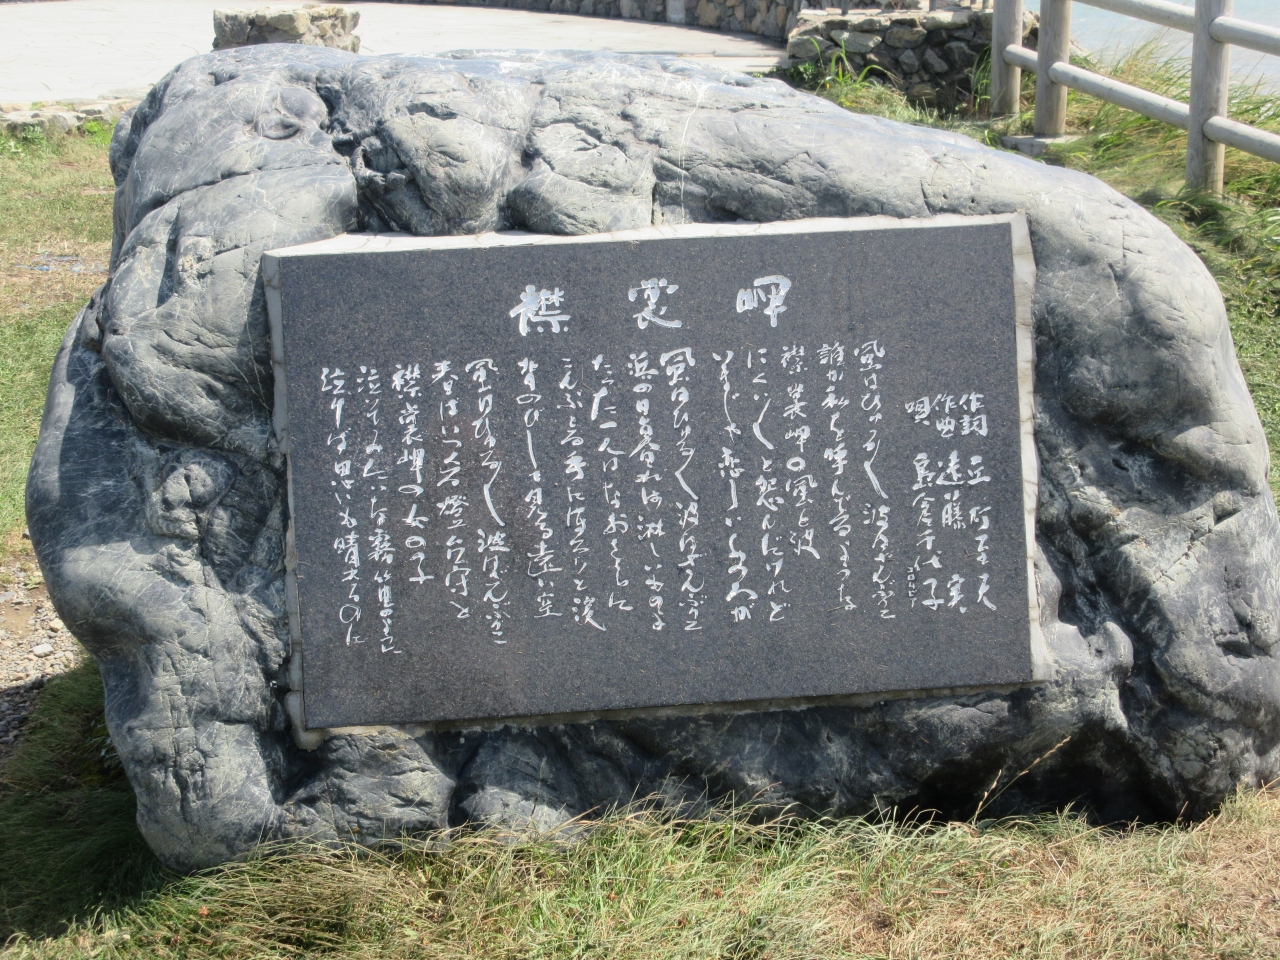 襟裳岬
作詞 丘灯至夫
作曲 遠藤 実
唄 島倉千代子
コロムビア
風はひゅる〱 波はざんぶりこ
誰か私を呼んでるような
襟裳岬の風と波
にくい〱と怨んだけれど
じゃ恋しい
風はひゅる〱 波はざんぶりこ
浜の日暮れは淋しいものよ
たった一人はなおさらに
こんぶとる手にほろりと涙
背のびして見る遠い空
風はひゅる〱 波はざんぶりこ
春はいつくる燈台守と
襟裳岬の女の子
泣いてみたいな霧笛のように
泣けば思いも晴れるのに